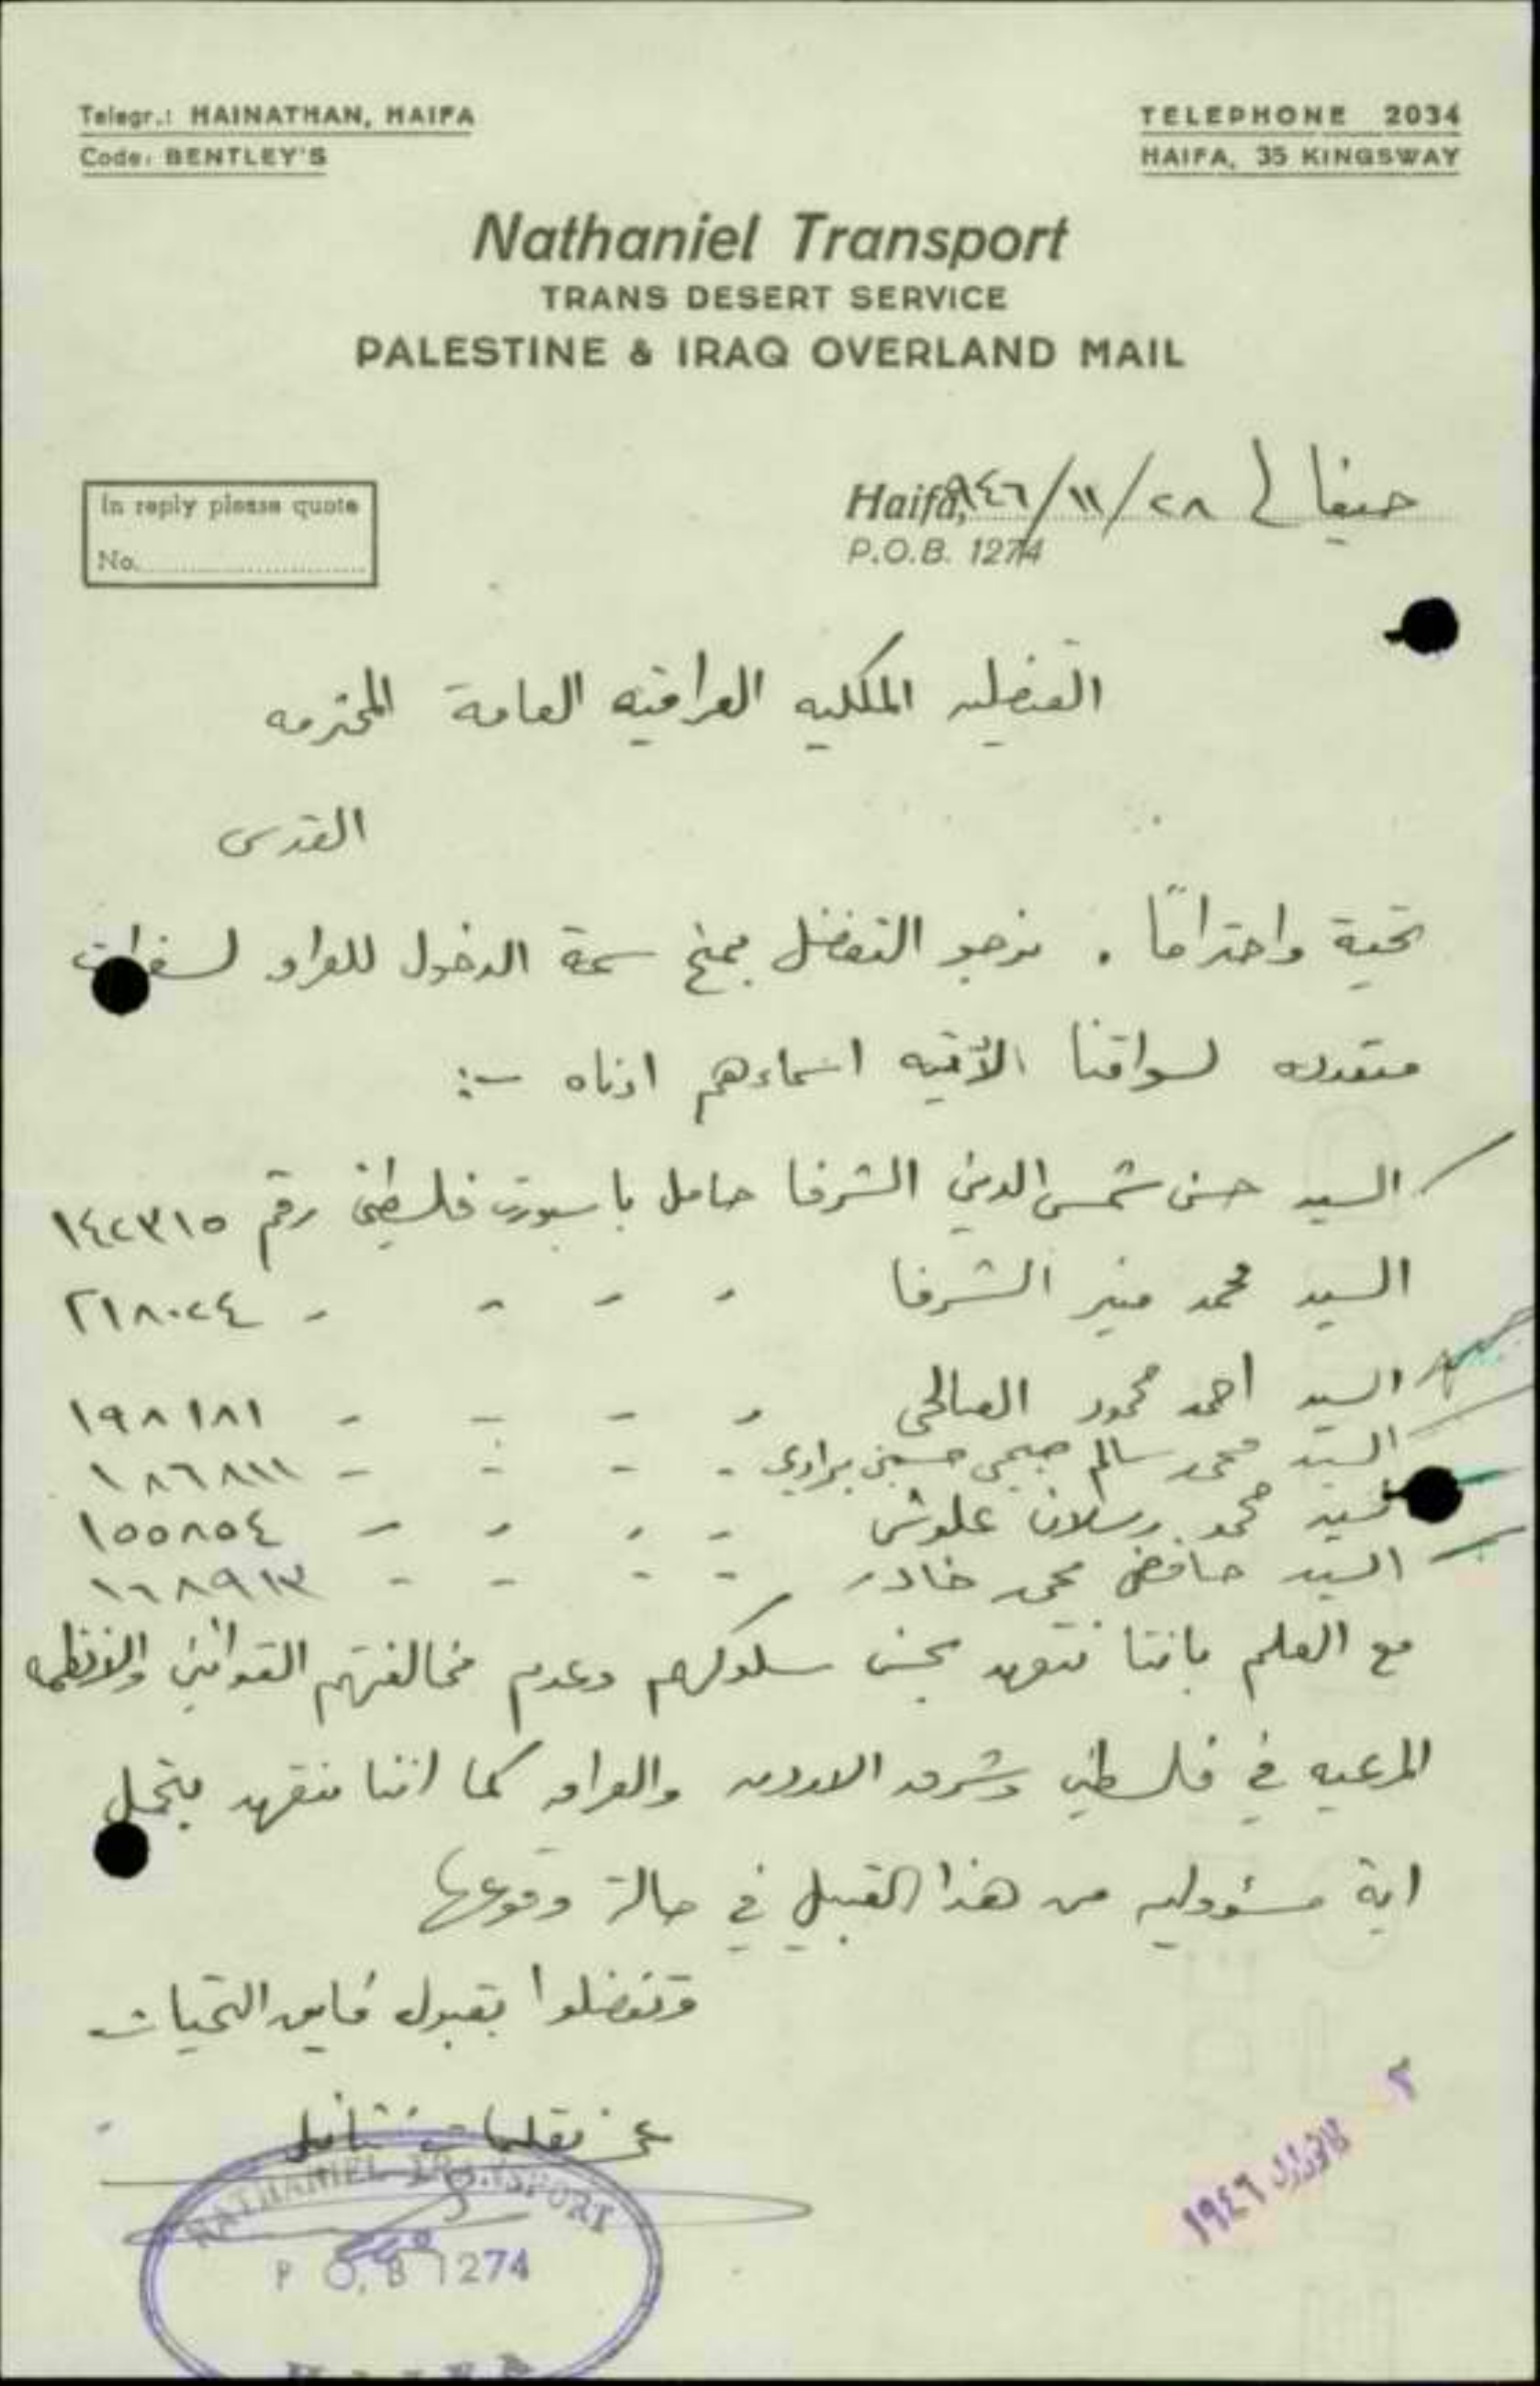 Telegr.: HAINATHAN, HAIFA
Code: BENTLEY'S
TELEPHONE 2034
HAIFA, 35 KINGSWAY
Nathaniel Transport
TRANS DESERT SERVICE
PALESTINE & IRAQ OVERLAND MAIL
In reply please quote
No.
Haifa, حيفا في ٢٨/١١/٩٤٦
P.O.B. 1274
القنصليه الملكيه العراقيه العامة المحترمه
القدس
تحية واحتراماً . نرجو التفضل بمنح سمة الدخول للعراق لسفرات
متعدده لسواقنا الآتيه اسماءهم ادناه :-
السيد حسن شمس الدين الشرفا حامل باسبورت فلسطيني رقم ١٤٢٣١٥
السيد محمد منير الشرفا - - - - ٢١٨٠٢٤
السيد احمد محمود الصالحي - - - - ١٩٨١٨١
السيد محمد سالم صبحي حسين برادي - - - - ١٨٦٨١١
السيد محمد رسلان علوش - - - - ١٥٥٨٥٤
السيد حافظ محمد - - - - ١٦٨٩١٣
مع العلم باننا نتعهد بحسن سلوكهم وعدم مخالفتهم القوانين والانظمه
المرعيه في فلسطين وشرق الاردن والعراق كما اننا نتعهد بتحمل
اية مسؤوليه من هذا القبيل في حالة وقوعها
وتفضلوا بقبول فايق التحيات
عن نقليات نتانيل
NATHANIEL TRANSPORT
P.O.B 1274
HAIFA
٢
١٩٤٦